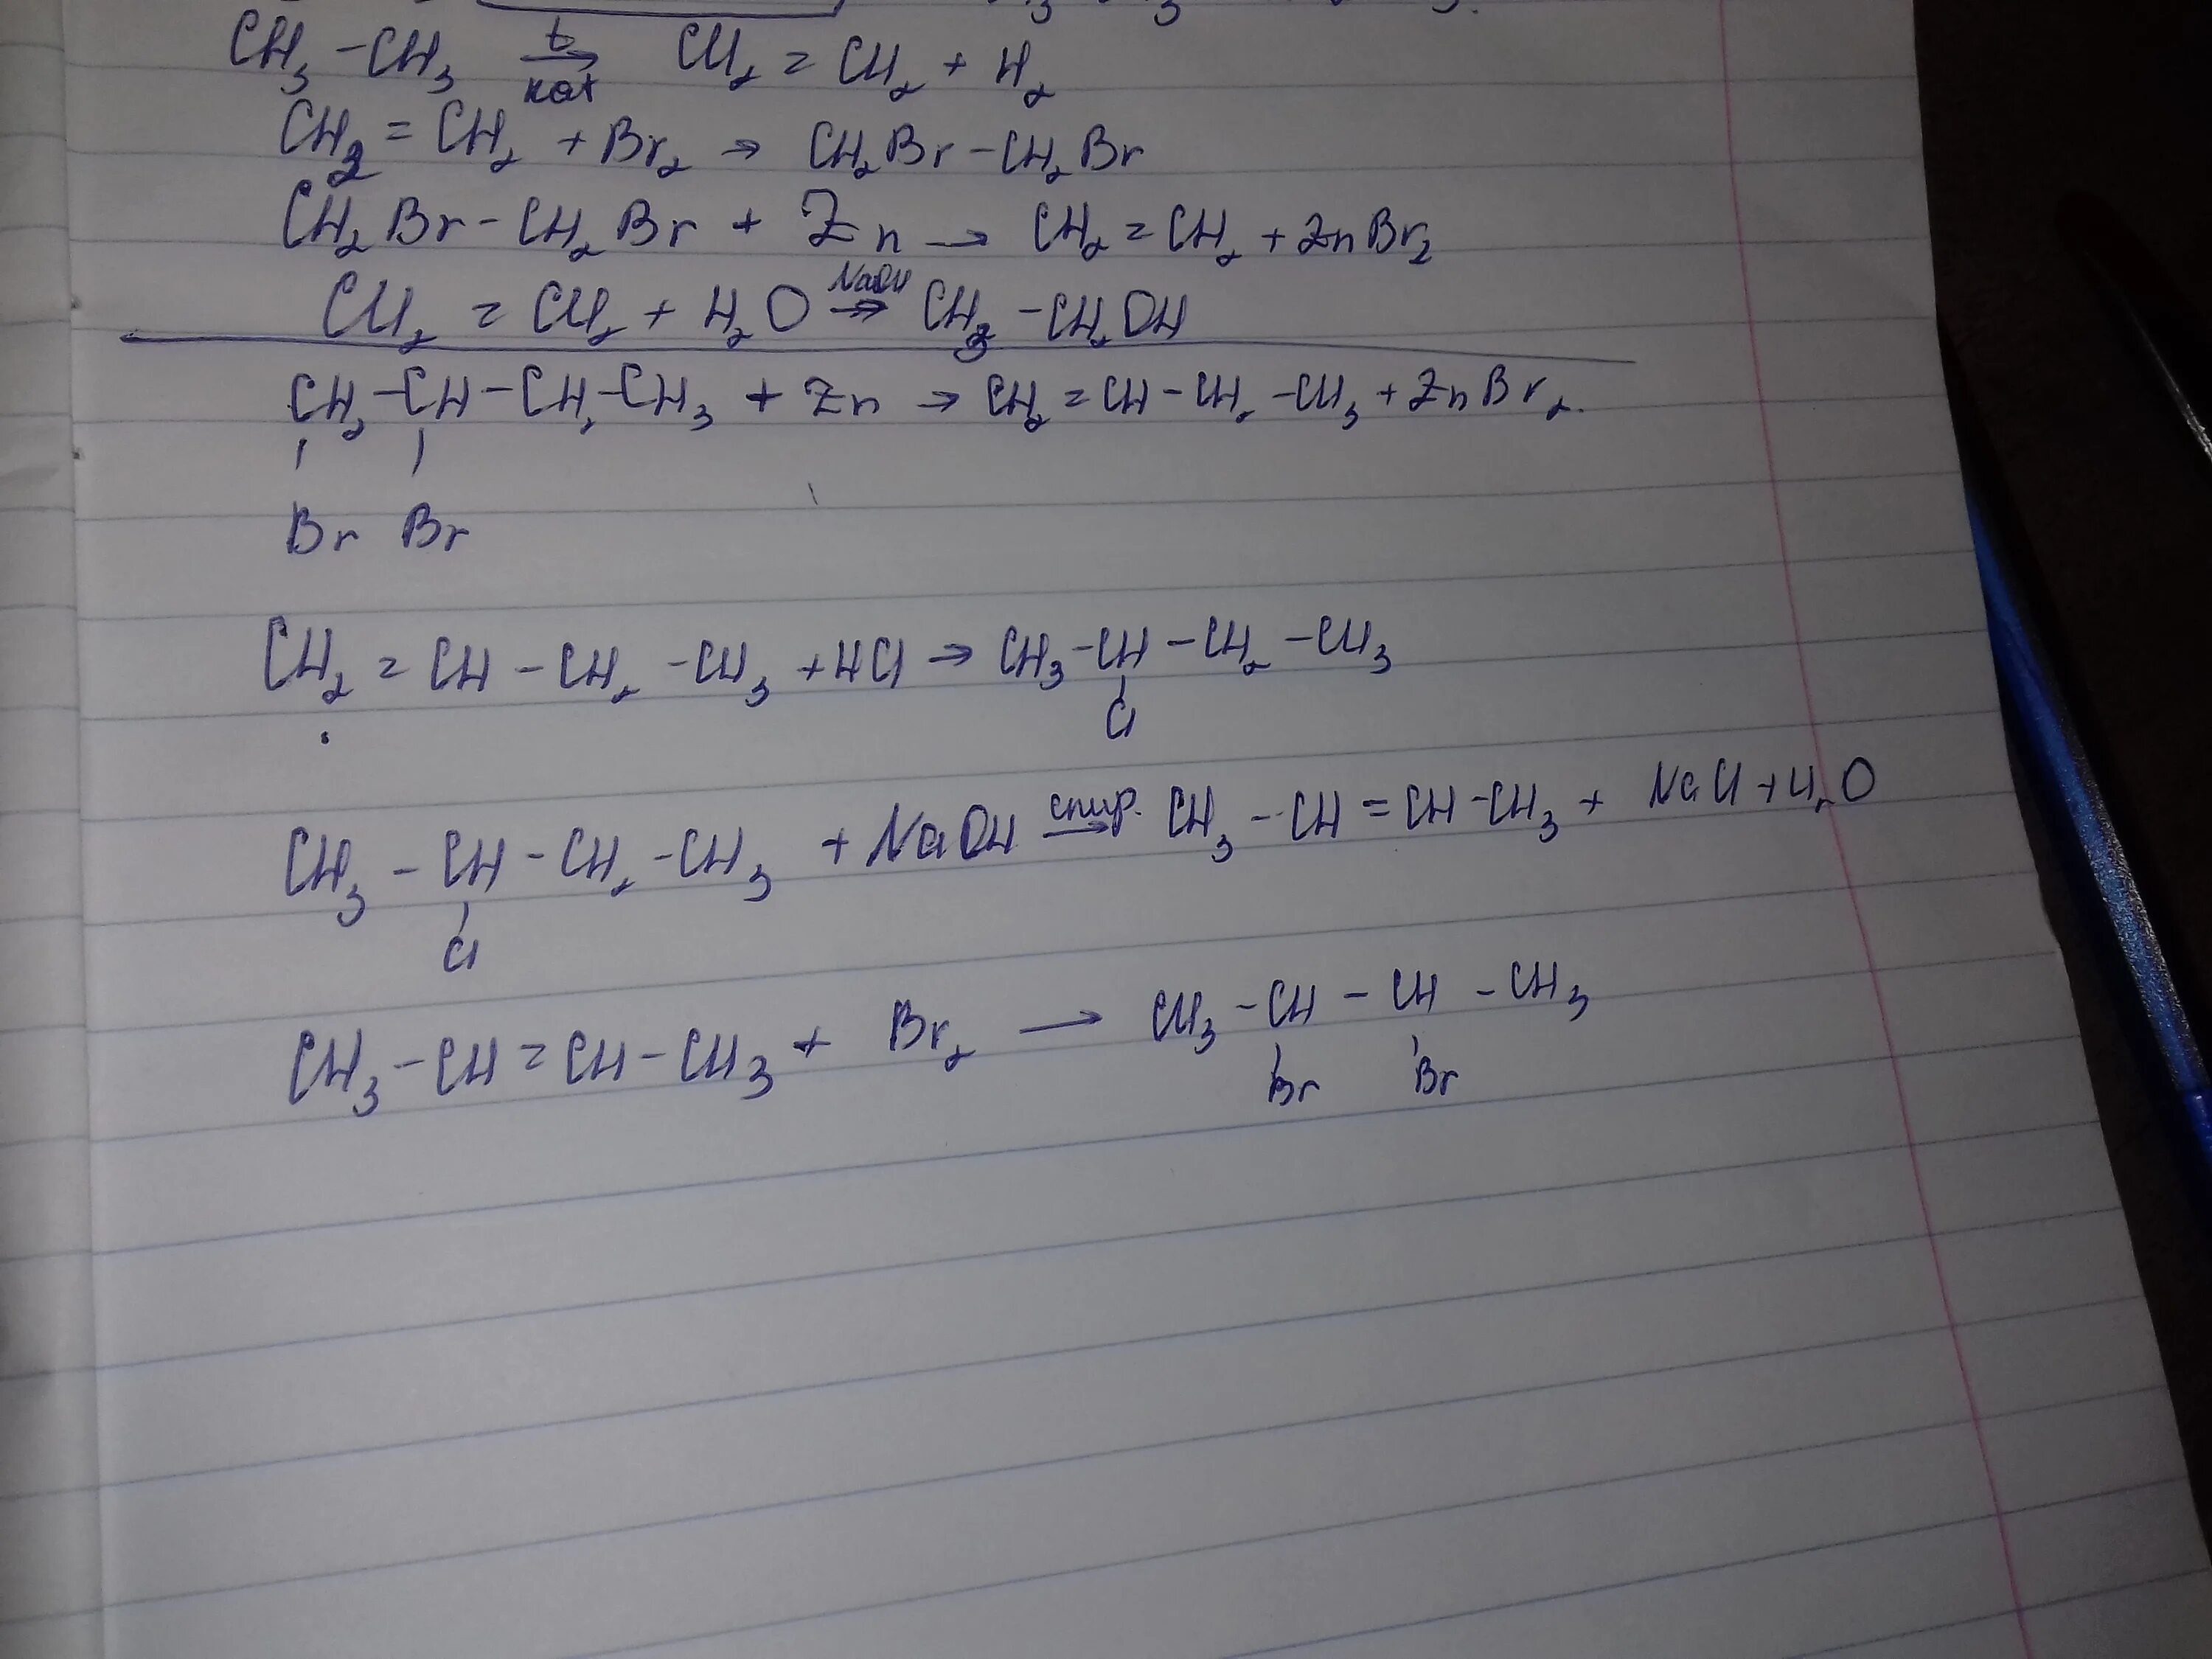 CH₃ – CH₃ t → кат CH₂ = CH₂ + H₂
CH₂ = CH₂ + Br₂ → CH₂Br – CH₂Br
CH₂Br – CH₂Br + Zn → CH₂ = CH₂ + ZnBr₂
CH₂ = CH₂ + H₂O NaOH → CH₃ – CH₂OH
CH₂ – CH – CH₂ – CH₃ + Zn → CH₂ = CH – CH₂ – CH₃ + ZnBr₂.
Br Br
CH₂ = CH – CH₂ – CH₃ + HCl → CH₃ – CH – CH₂ – CH₃
Cl
CH₃ – CH – CH₂ – CH₃ + NaOH спир. → CH₃ – CH = CH – CH₃ + NaCl + H₂O
Cl
CH₃ – CH = CH – CH₃ + Br₂ → CH₃ – CH – CH – CH₃
Br Br